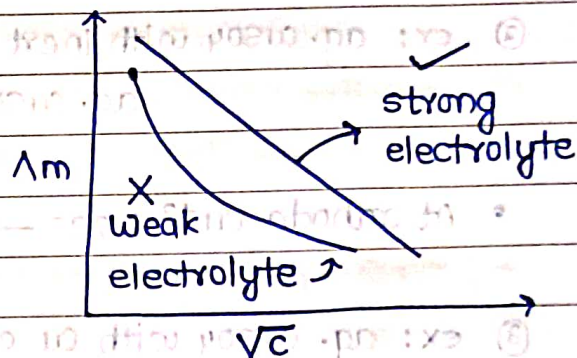 ✓
strong
electrolyte
Λm
×
weak
electrolyte
√c